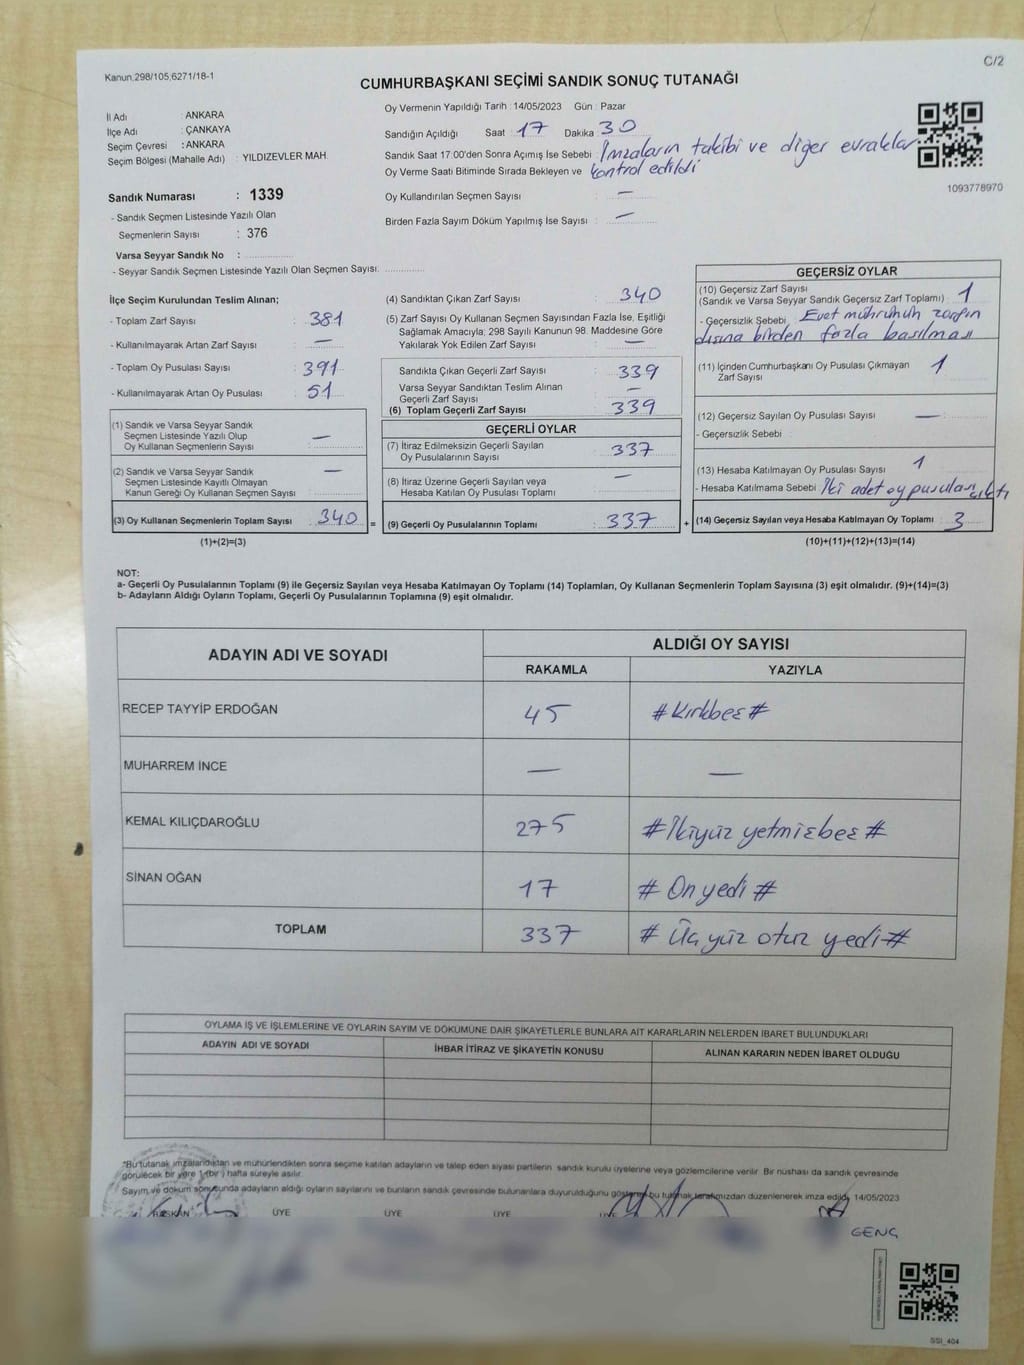 Kanun,298/105,6271/18-1
C/2
CUMHURBAŞKANI SEÇİMİ SANDIK SONUÇ TUTANAĞI
İl Adı : ANKARA
İlçe Adı : ÇANKAYA
Seçim Çevresi : ANKARA
Seçim Bölgesi (Mahalle Adı) : YILDIZEVLER MAH.
Sandık Numarası : 1339
- Sandık Seçmen Listesinde Yazılı Olan
Seçmenlerin Sayısı : 376
Varsa Seyyar Sandık No :
- Seyyar Sandık Seçmen Listesinde Yazılı Olan Seçmen Sayısı:
Oy Vermenin Yapıldığı Tarih : 14/05/2023 Gün : Pazar
Sandığın Açıldığı Saat : 17 Dakika : 30
Sandık Saat 17:00'den Sonra Açımış İse Sebebi : İmzaların takibi ve diğer evraklar
Oy Verme Saati Bitiminde Sırada Bekleyen ve kontrol edildi
Oy Kullandırılan Seçmen Sayısı : —
Birden Fazla Sayım Döküm Yapılmış İse Sayısı : —
1093778970
İlçe Seçim Kurulundan Teslim Alınan;
- Toplam Zarf Sayısı : 381
- Kullanılmayarak Artan Zarf Sayısı : —
- Toplam Oy Pusulası Sayısı : 391
- Kullanılmayarak Artan Oy Pusulası : 51
(1) Sandık ve Varsa Seyyar Sandık
Seçmen Listesinde Yazılı Olup
Oy Kullanan Seçmenlerin Sayısı : —
(2) Sandık ve Varsa Seyyar Sandık
Seçmen Listesinde Kayıtlı Olmayan
Kanun Gereği Oy Kullanan Seçmen Sayısı : —
(3) Oy Kullanan Seçmenlerin Toplam Sayısı : 340 =
(1)+(2)=(3)
(4) Sandıktan Çıkan Zarf Sayısı : 340
(5) Zarf Sayısı Oy Kullanan Seçmen Sayısından Fazla İse, Eşitliği
Sağlamak Amacıyla; 298 Sayılı Kanunun 98. Maddesine Göre
Yakılarak Yok Edilen Zarf Sayısı : —
Sandıkta Çıkan Geçerli Zarf Sayısı : 339
Varsa Seyyar Sandıktan Teslim Alınan
Geçerli Zarf Sayısı : —
(6) Toplam Geçerli Zarf Sayısı : 339
GEÇERLİ OYLAR
(7) İtiraz Edilmeksizin Geçerli Sayılan
Oy Pusulalarının Sayısı : 337
(8) İtiraz Üzerine Geçerli Sayılan veya
Hesaba Katılan Oy Pusulası Toplamı : —
(9) Geçerli Oy Pusulalarının Toplamı : 337 +
GEÇERSİZ OYLAR
(10) Geçersiz Zarf Sayısı
(Sandık ve Varsa Seyyar Sandık Geçersiz Zarf Toplamı) : 1
- Geçersizlik Sebebi : Evet mührünün zarfın
dışına birden fazla basılması
(11) İçinden Cumhurbaşkanı Oy Pusulası Çıkmayan
Zarf Sayısı : 1
(12) Geçersiz Sayılan Oy Pusulası Sayısı : —
- Geçersizlik Sebebi :
(13) Hesaba Katılmayan Oy Pusulası Sayısı : 1
- Hesaba Katılmama Sebebi : İki adet oy pusulası çıktı
(14) Geçersiz Sayılan veya Hesaba Katılmayan Oy Toplamı : 3
(10)+(11)+(12)+(13)=(14)
NOT:
a- Geçerli Oy Pusulalarının Toplamı (9) ile Geçersiz Sayılan veya Hesaba Katılmayan Oy Toplamı (14) Toplamları, Oy Kullanan Seçmenlerin Toplam Sayısına (3) eşit olmalıdır. (9)+(14)=(3)
b- Adayların Aldığı Oyların Toplamı, Geçerli Oy Pusulalarının Toplamına (9) eşit olmalıdır.
ADAYIN ADI VE SOYADI ALDIĞI OY SAYISI
RAKAMLA YAZIYLA
RECEP TAYYİP ERDOĞAN 45 #Kırkbeş#
MUHARREM İNCE — —
KEMAL KILIÇDAROĞLU 275 #İkiyüz yetmişbeş#
SİNAN OĞAN 17 # On yedi #
TOPLAM 337 # Üçyüz otuz yedi #
OYLAMA İŞ VE İŞLEMLERİNE VE OYLARIN SAYIM VE DÖKÜMÜNE DAİR ŞİKAYETLERLE BUNLARA AİT KARARLARIN NELERDEN İBARET BULUNDUKLARI
ADAYIN ADI VE SOYADI İHBAR İTİRAZ VE ŞİKAYETİN KONUSU ALINAN KARARIN NEDEN İBARET OLDUĞU
*Bu tutanak imzalandıktan ve mühürlendikten sonra seçime katılan adayların ve talep eden siyasi partilerin sandık kurulu üyelerine veya gözlemcilerine verilir. Bir nüshası da sandık çevresinde
görülecek bir yere 1 (bir) hafta süreyle asılır.
Sayım ve döküm sonucunda adayların aldığı oyların sayılarını ve bunların sandık çevresinde bulunanlara duyurulduğunu gösteren bu tutanak tarafımızdan düzenlenerek imza edildi. 14/05/2023
BAŞKAN ÜYE ÜYE ÜYE ÜYE
GENÇ
SSI_404